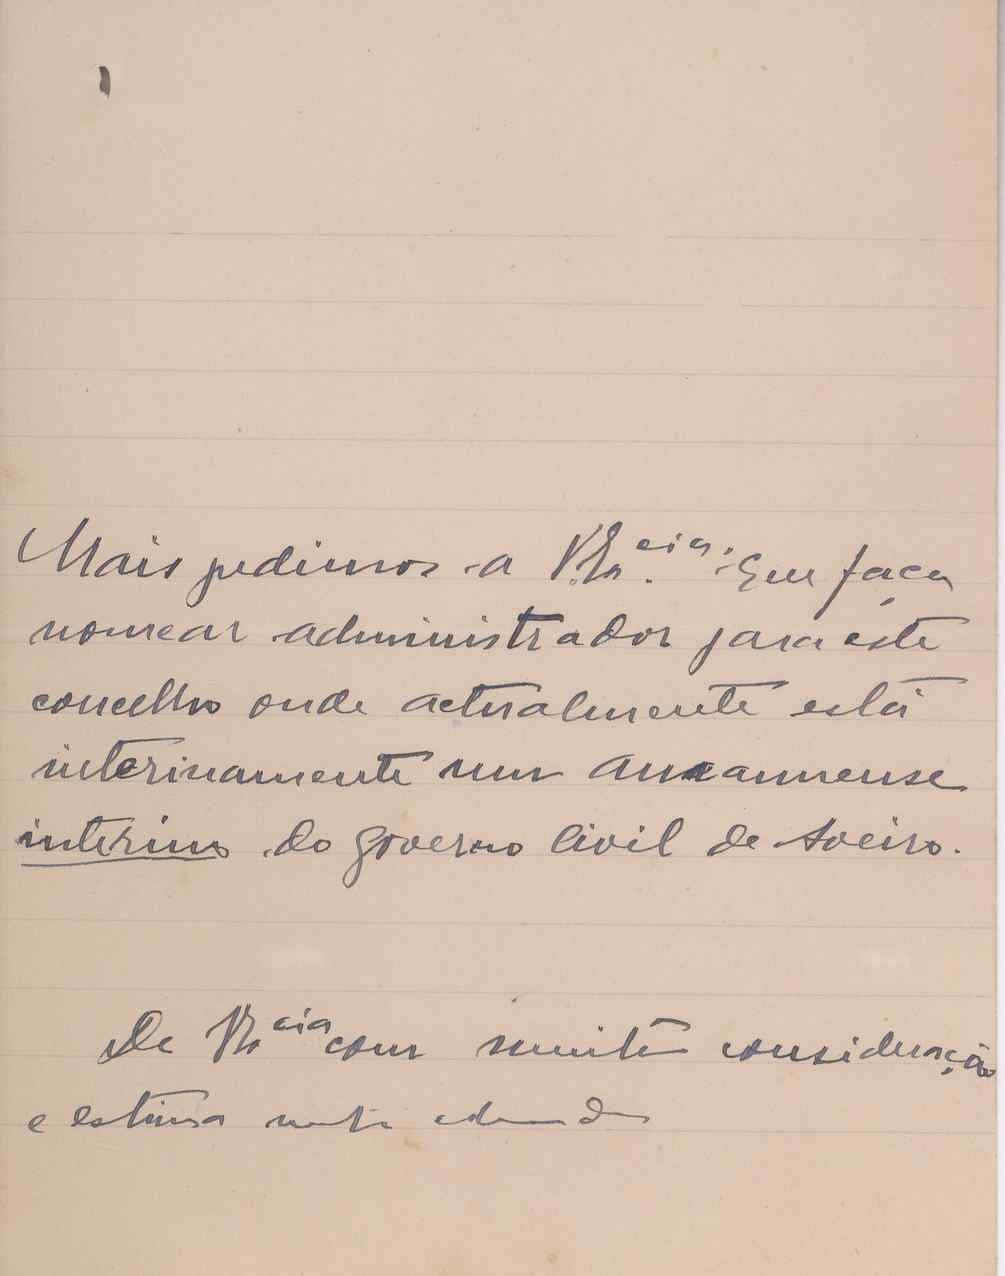 Mais pedimos a V. Ex.cia que faça
nomear administrador para éste
concelho onde actualmente está
interinamente um amanuense
interino do governo civil de Aveiro.
De V. Ex.cia com muita consideração
e estima